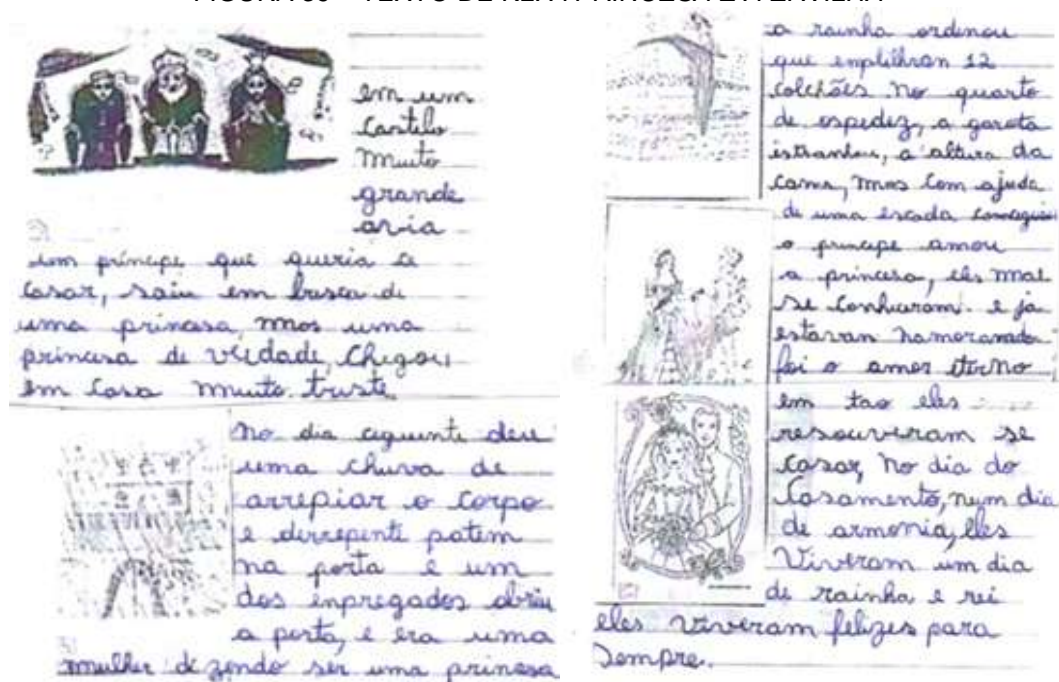 em um
Castelo
muito
grande
avia
um príncipe que queria a
casar, saiu em busca de
uma prinsasa, mas uma
princesa de verdade, chegou
em Casa muito triste
no dia ceguinte deu
uma chuva de
arrepiar o corpo
e derrepente patem
na porta e um
dos enpregados abriu
a porta, e era uma
mulher di zendo ser uma prinsesa
a rainha ordenou
que enpilhran 12
colchões no quarto
de ospedez, a garota
estranhou, a altura da
cama, mas com ajuda
de uma escada
o principe amou
a princesa, eles mal
se conheceram e ja
estavan
foi o amor eterno
em tao eles
resouveram se
casar, no dia do
Casamento, num dia
de armonia, eles
Viveram um dia
de rainha e rei
eles viveram felizes para
sempre.